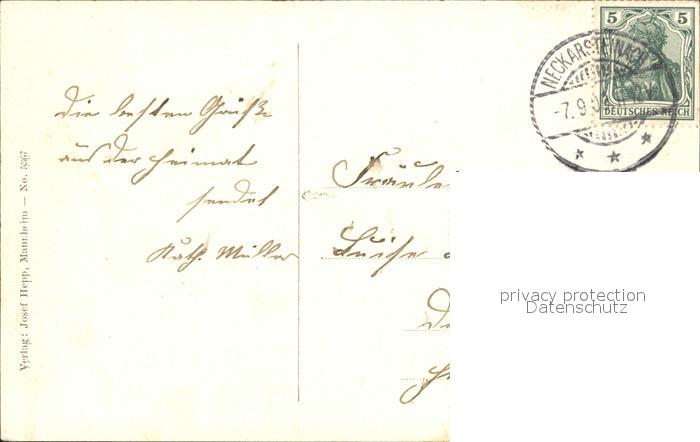 Die besten Grüße
aus der Heimat
sendet
Kath. Müller
Verlag: Josef Hepp, Mannheim – No. 5367
Fräule
Luise
5 5
DEUTSCHES REICH
NECKARSTEINACH
-7.9.
privacy protection
Datenschutz